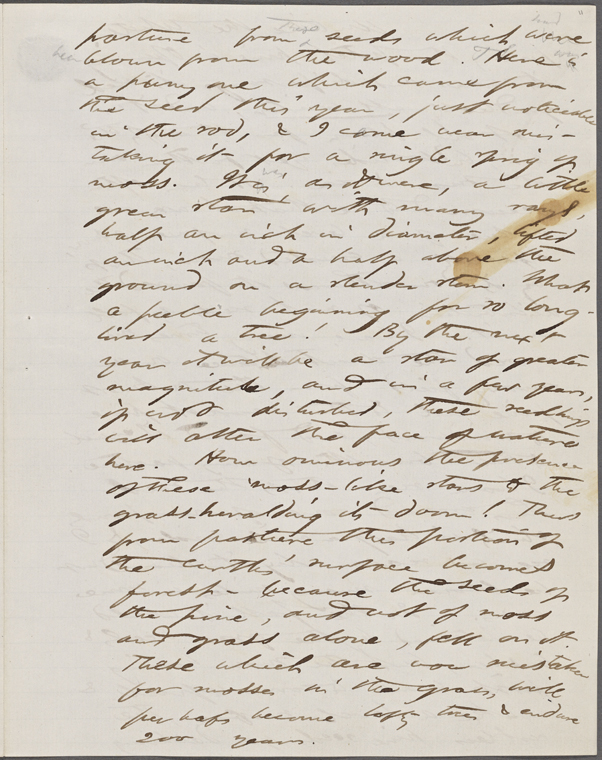 pasture from seeds which were
blown from the wood. Here is
a puny one which came from
the seed this year, just noticeable
in the sod, & I come near mis-
taking it for a single sprig of
moss. It is, as it were, a little
green star with many rays,
half an inch in diameter, lifted
an inch and a half above the
ground on a slender stem. What
a feeble beginning for so long-
lived a tree! By the next
year it will be a star of greater
magnitude, and in a few years,
if not disturbed, these seedlings
will alter the face of nature
here. How ominous the presence
of these moss-like stars to the
grass-heralding its doom! Thus
from pasture this portion of
the earth's surface becomes
forest - because the seeds of
the pine, and not of moss
and grass alone, fell on it.
These which are now mistaken
for mosses in the grass, will
perhaps become lofty trees & endure
200 years.